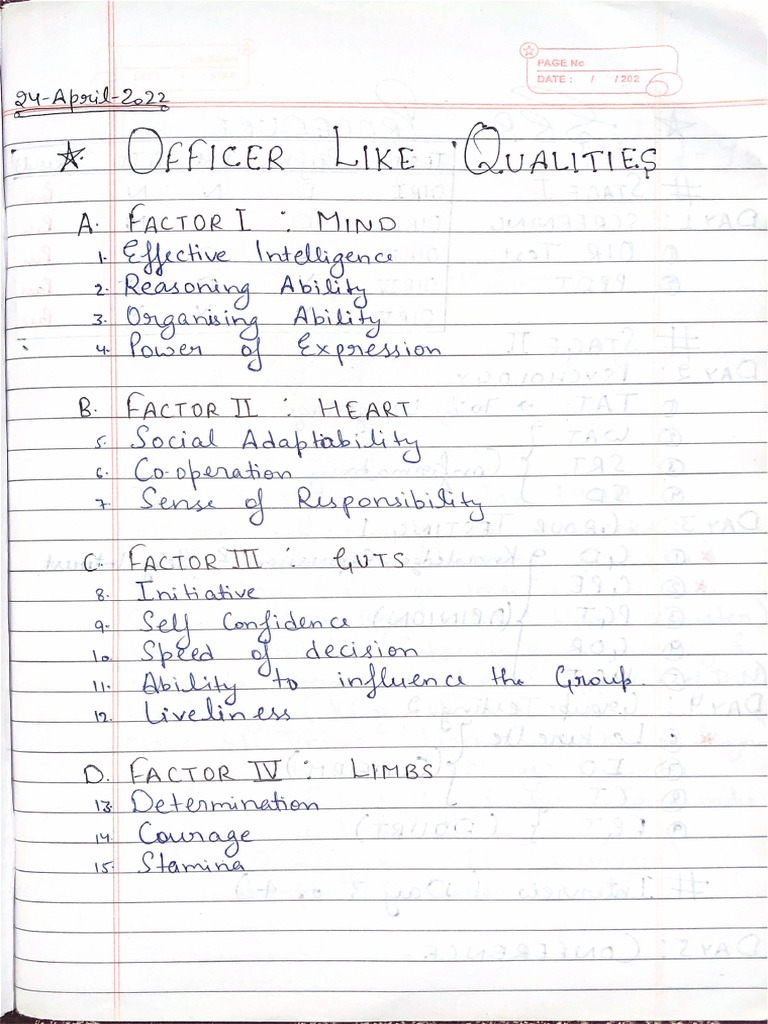 PAGE No
DATE : / / 202
24-April-2022
☆ OFFICER LIKE QUALITIES
A. FACTOR I : MIND
1. Effective Intelligence
2. Reasoning Ability
3. Organising Ability
4. Power of Expression
B. FACTOR II : HEART
5. Social Adaptability
6. Co-operation
7. Sense of Responsibility
C. FACTOR III : GUTS
8. Initiative
9. Self Confidence
10. Speed of decision
11. Ability to influence the Group.
12. Liveliness
D. FACTOR IV : LIMBS
13. Determination
14. Courage
15. Stamina